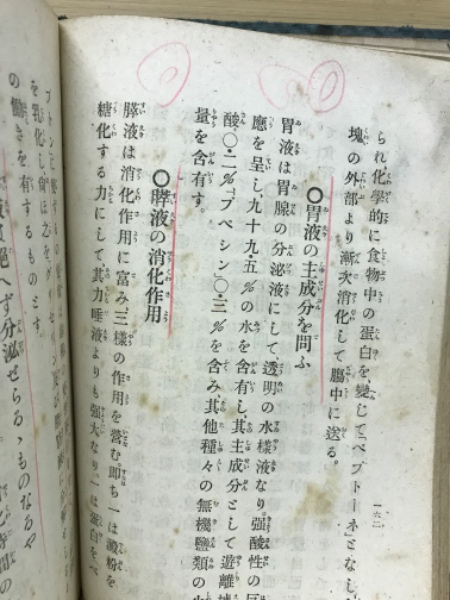 られ化學的に食物中の蛋白を變じて「ペプトーネ」となし
塊の外部より漸次消化して膓中に送る。
○胃液の主成分を問ふ
胃液は胃腺の分泌液にして、透明の水樣液なり、强酸性の
應を呈し、九十九・五％の水を含有し、其主成分として遊離
酸、〇・二％、「プペシン」〇・三％を含み、其他種々の無機鹽類の
量を含有す。
○膵液の消化作用
膵液は消化作用に富み、三樣の作用を營む、卽ち一は澱粉を
糖化する力にして、其力唾液よりも强大なり一は蛋白をペ
プトンに
を乳化し
の働きを有するものとす。
絕へず分泌せらるゝものなるや
一六二